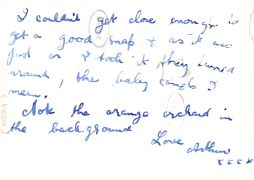 I couldn't get close enough to
get a good snap & as it was
just as I took it they turned
around, the baby caught I
mean.
Note the orange orchard in
the background
Love
Arthur
x x x x